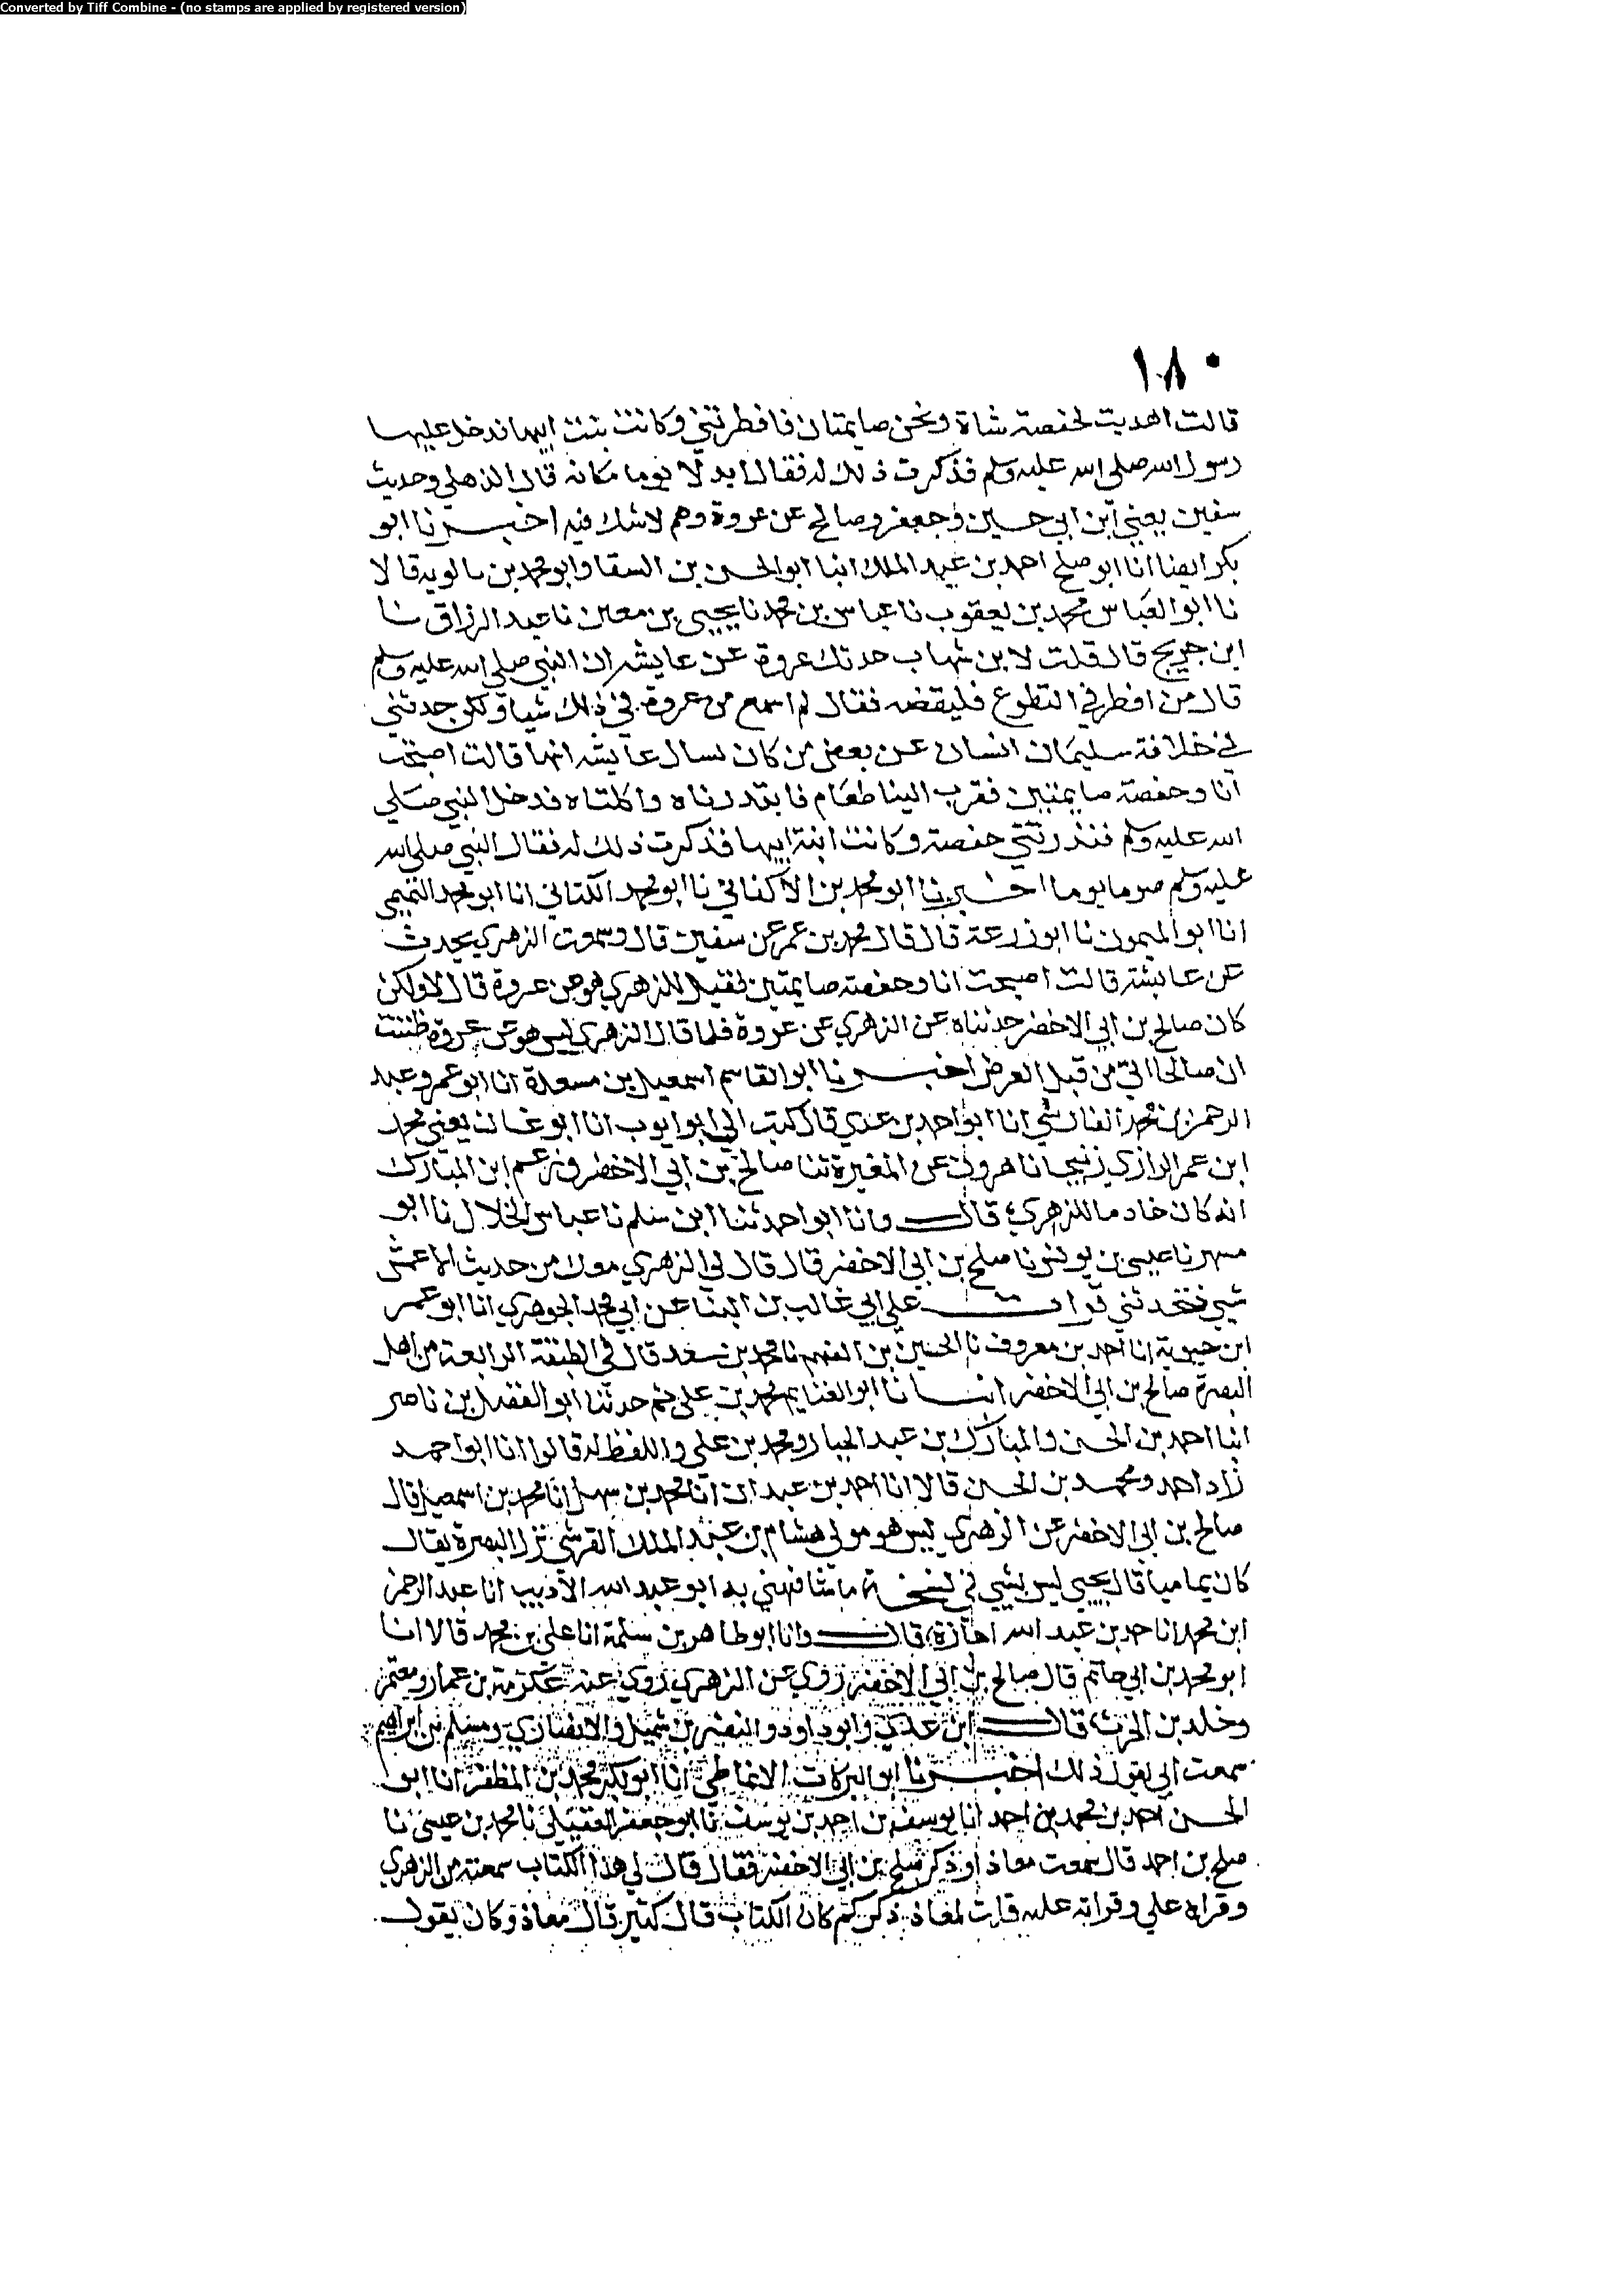 Converted by Tiff Combine - (no stamps are applied by registered version)
١٨٠
قالت اهديت لحفصة شاة ونحن صايمتان فافطرتني وكانت بنت ابيها فدخل عليها
رسول الله صلى الله عليه وسلم فذكرت ذلك له فقال ابدلا يوما مكانه قال الذهلي وحديث
سفين يعني ابن ابي حسين وجعفر وصالح عن عروة وهم لا شك فيه اخبرنا ابو
بكر ايضا انا ابو صلح احمد بن عبد الملك انبا ابو الحسن بن السقا وابو محمد بن بالويه قالا
نا ابو العباس محمد بن يعقوب نا عباس بن محمد نا يحيى بن معين نا عبد الرزاق نا
ابن جريج قال قلت لابن شهاب حدثك عروة عن عايشه ان النبي صلى الله عليه وسلم
قال من افطر في التطوع فليقضه فقال لم اسمع من عروة في ذلك شيا ولكن حدثني
في خلافة سليمان انسان عن بعض من كان يسال عايشه انها قالت اصبحت
انا وحفصة صايمتين فقرب الينا طعام فابتدرناه واكلناه فدخل النبي صلى
الله عليه وسلم فبدرتني حفصة وكانت ابنة ابيها فذكرت ذلك له فقال النبي صلى الله
عليه وسلم صوما يوما اخبرنا ابو محمد بن الاكفاني نا ابو محمد الكتاني انا ابو محمد التميمي
انا ابو الميمون نا ابو زرعة قال قال محمد بن عمر عن سفين قال وسمعت الزهري يحدث
عن عايشة قالت اصبحت انا وحفصة صايمتين فقيل للزهري هو عن عروة قال لا ولكن
كان صالح بن ابي الاخضر حدثناه عن الزهري عن عروة فلما قال الزهري ليس هو عن عروة ظننت
ان صالحا اتي من قبل العرض اخبرنا ابو القاسم اسمعيل بن مسعدة انا ابو عمرو عبد
الرحمن بن محمد الفارسي انا ابو احمد بن عدي قال كتب الي ابو ايوب انا ابو غسان يعني محمد
ابن عمر الرازي زنيجا نا هرون عن المغيرة ثنا صالح بن ابي الاخضر وزعم ابن المبارك
انه كان خادما للزهري قال وانا ابو احمد ثنا ابن سلم نا عباس الخلال نا ابو
مسهر نا عيسى بن يونس نا صلح بن ابي الاخضر قال قال لي الزهري معك من حديث الاعمش
شي فتحدثني قرات على ابي غالب بن البنا عن ابي محمد الجوهري انا ابو عمر
ابن حيوية انا احمد بن معروف نا الحسين بن الفهم نا محمد بن سعد قال في الطبقة الرابعة من اهل
البصرة صالح بن ابي الاخضر انبانا ابو الغنايم محمد بن علي ثم حدثنا ابو الفضل بن ناصر
انبا احمد بن الحسن والمبارك بن عبد الجبار ومحمد بن علي واللفظ له قالوا انا ابو احمد
زاد احمد ومحمد بن الحسن قالا انا احمد بن عبدان انا محمد بن سهل انا محمد بن اسمعيل قال
صالح بن ابي الاخضر عن الزهري ليس هو مولى هشام بن عبد الملك القرشي نزل البصرة يقال
كان يماميا قال يحيى ليس بشي في نسخة ما شافهني به ابو عبد الله الاديب انا عبد الرحمن
ابن محمد انا حمد بن عبد الله اجازة قال وانا ابو طاهر بن سلمة انا علي بن محمد قالا انا
ابو محمد بن ابي حاتم قال صالح بن ابي الاخضر روى عن الزهري روى عنه عكرمة بن عمار ومعتمر
وخلد بن الحرث قال ابن عدي وابو داود والنضر بن شميل والانصاري ومسلم بن ابراهيم
سمعت ابي يقول ذلك اخبرنا ابو البركات الانماطي انا ابو بكر محمد بن المظفر انا ابو
الحسن احمد بن محمد بن احمد انا يوسف بن احمد بن يوسف نا ابو جعفر العقيلي نا محمد بن عيسى نا
صلح بن احمد قال سمعت معاذ او ذكر صلح بن ابي الاخضر فقال قال لي هذا الكتاب سمعته من الزهري
وقراه علي وقراته عليه قلت لمعاذ ذكر كم كان الكتاب قال كثير قال معاذ وكان يقول